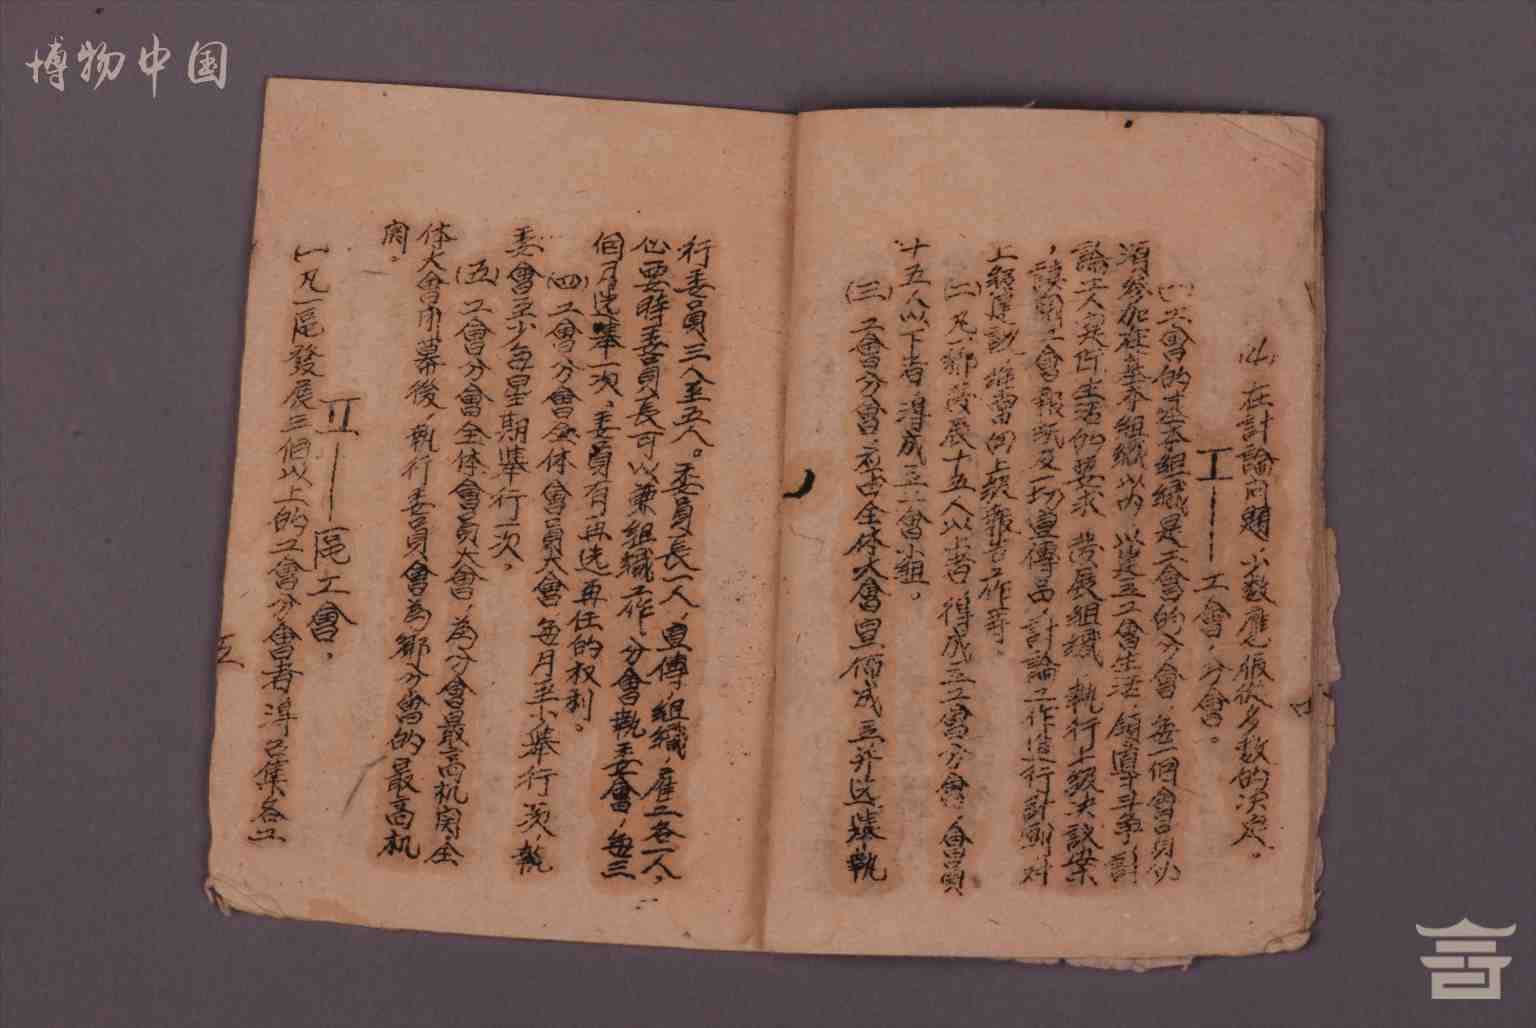 博物中国
(4)在討論问題，少数應服從多数的决定。
I——工會，分會。
(一)工會的基本組織是工會的分會 每一個會員必
須參加在基本組織以内，以建立工會生活，領導斗争，討
論工人實际生活的要求 發展組織 執行上級决議案
，談閱工會報紙及一切宣傳品，討論工作進行計劃对
上級建議，准當向上級報告工作等。
(二)凡一鄉發展十五人以上者，得成立工會分會，會員
十五人以下者，得成立工會小組。
(三)工會分會，應由全体大會宣佈成立并选举執
行委員三人至五人。委員長一人，宣傳，組織，雇工各一人，
必要時委員長可以兼組織工作，分會執委會，每三
個月选举一次，委員有再选再任的权利。
(四)工會分會全体會員大會每月至少举行一次，執
委會至少每星期举行一次，
(五)工會分會全体會員大會，為分會最高机関，全
体大會闭幕後，執行委員會為鄉分會的最高机
関。
II——區工會，
(一凡一區發展三個以上的工會分會者 得召集各工
五